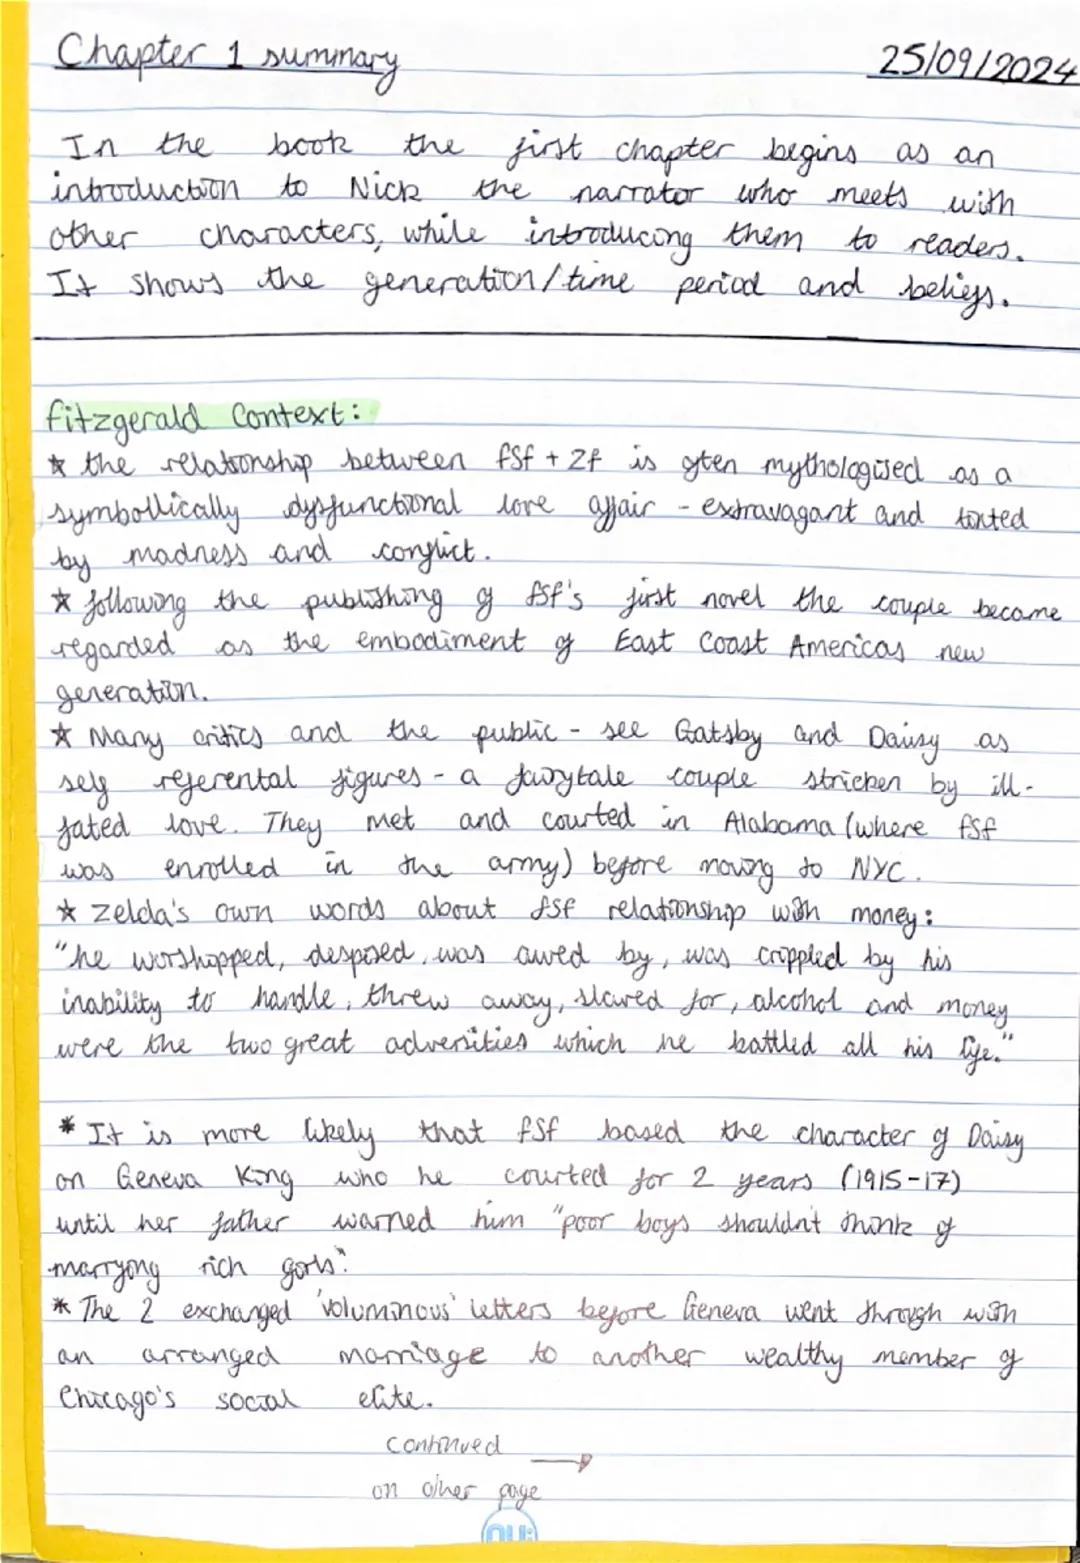 Chapter 1 summary
25/09/2024
In the book the first chapter begins as an
introduction to Nick the narrator who meets with
other characters, while introducing them to readers.
It shows the generation/time period and beliefs.
fitzgerald Context:
☆ the relationship between fSf + Zf is often mythologised as a
symbollically dysfunctional love affair - extravagant and tinted
by madness and conflict.
☆ following the publishing of fSf's first novel the couple became
regarded as the embodiment of East Coast Americas new
generation.
☆ Many critics and the public - see Gatsby and Daisy as
self referental figures - a fairytale couple stricken by ill-
fated love. They met and courted in Alabama (where fSf
was enrolled in the army) before moving to NYC.
☆ Zelda's own words about fSf relationship with money:
"he worshopped, despised, was awed by, was crippled by his
inability to handle, threw away, slaved for, alcohol and money
were the two great adversities which he battled all his life."
* It is more likely that fSf based the character of Daisy
on Geneva King who he courted for 2 years (1915-17)
until her father warned him "poor boys shouldn't think of
marrying rich girls".
* The 2 exchanged 'voluminous' letters before Geneva went through with
an arranged marriage to another wealthy member of
Chicago's social elite.
continued
on other page